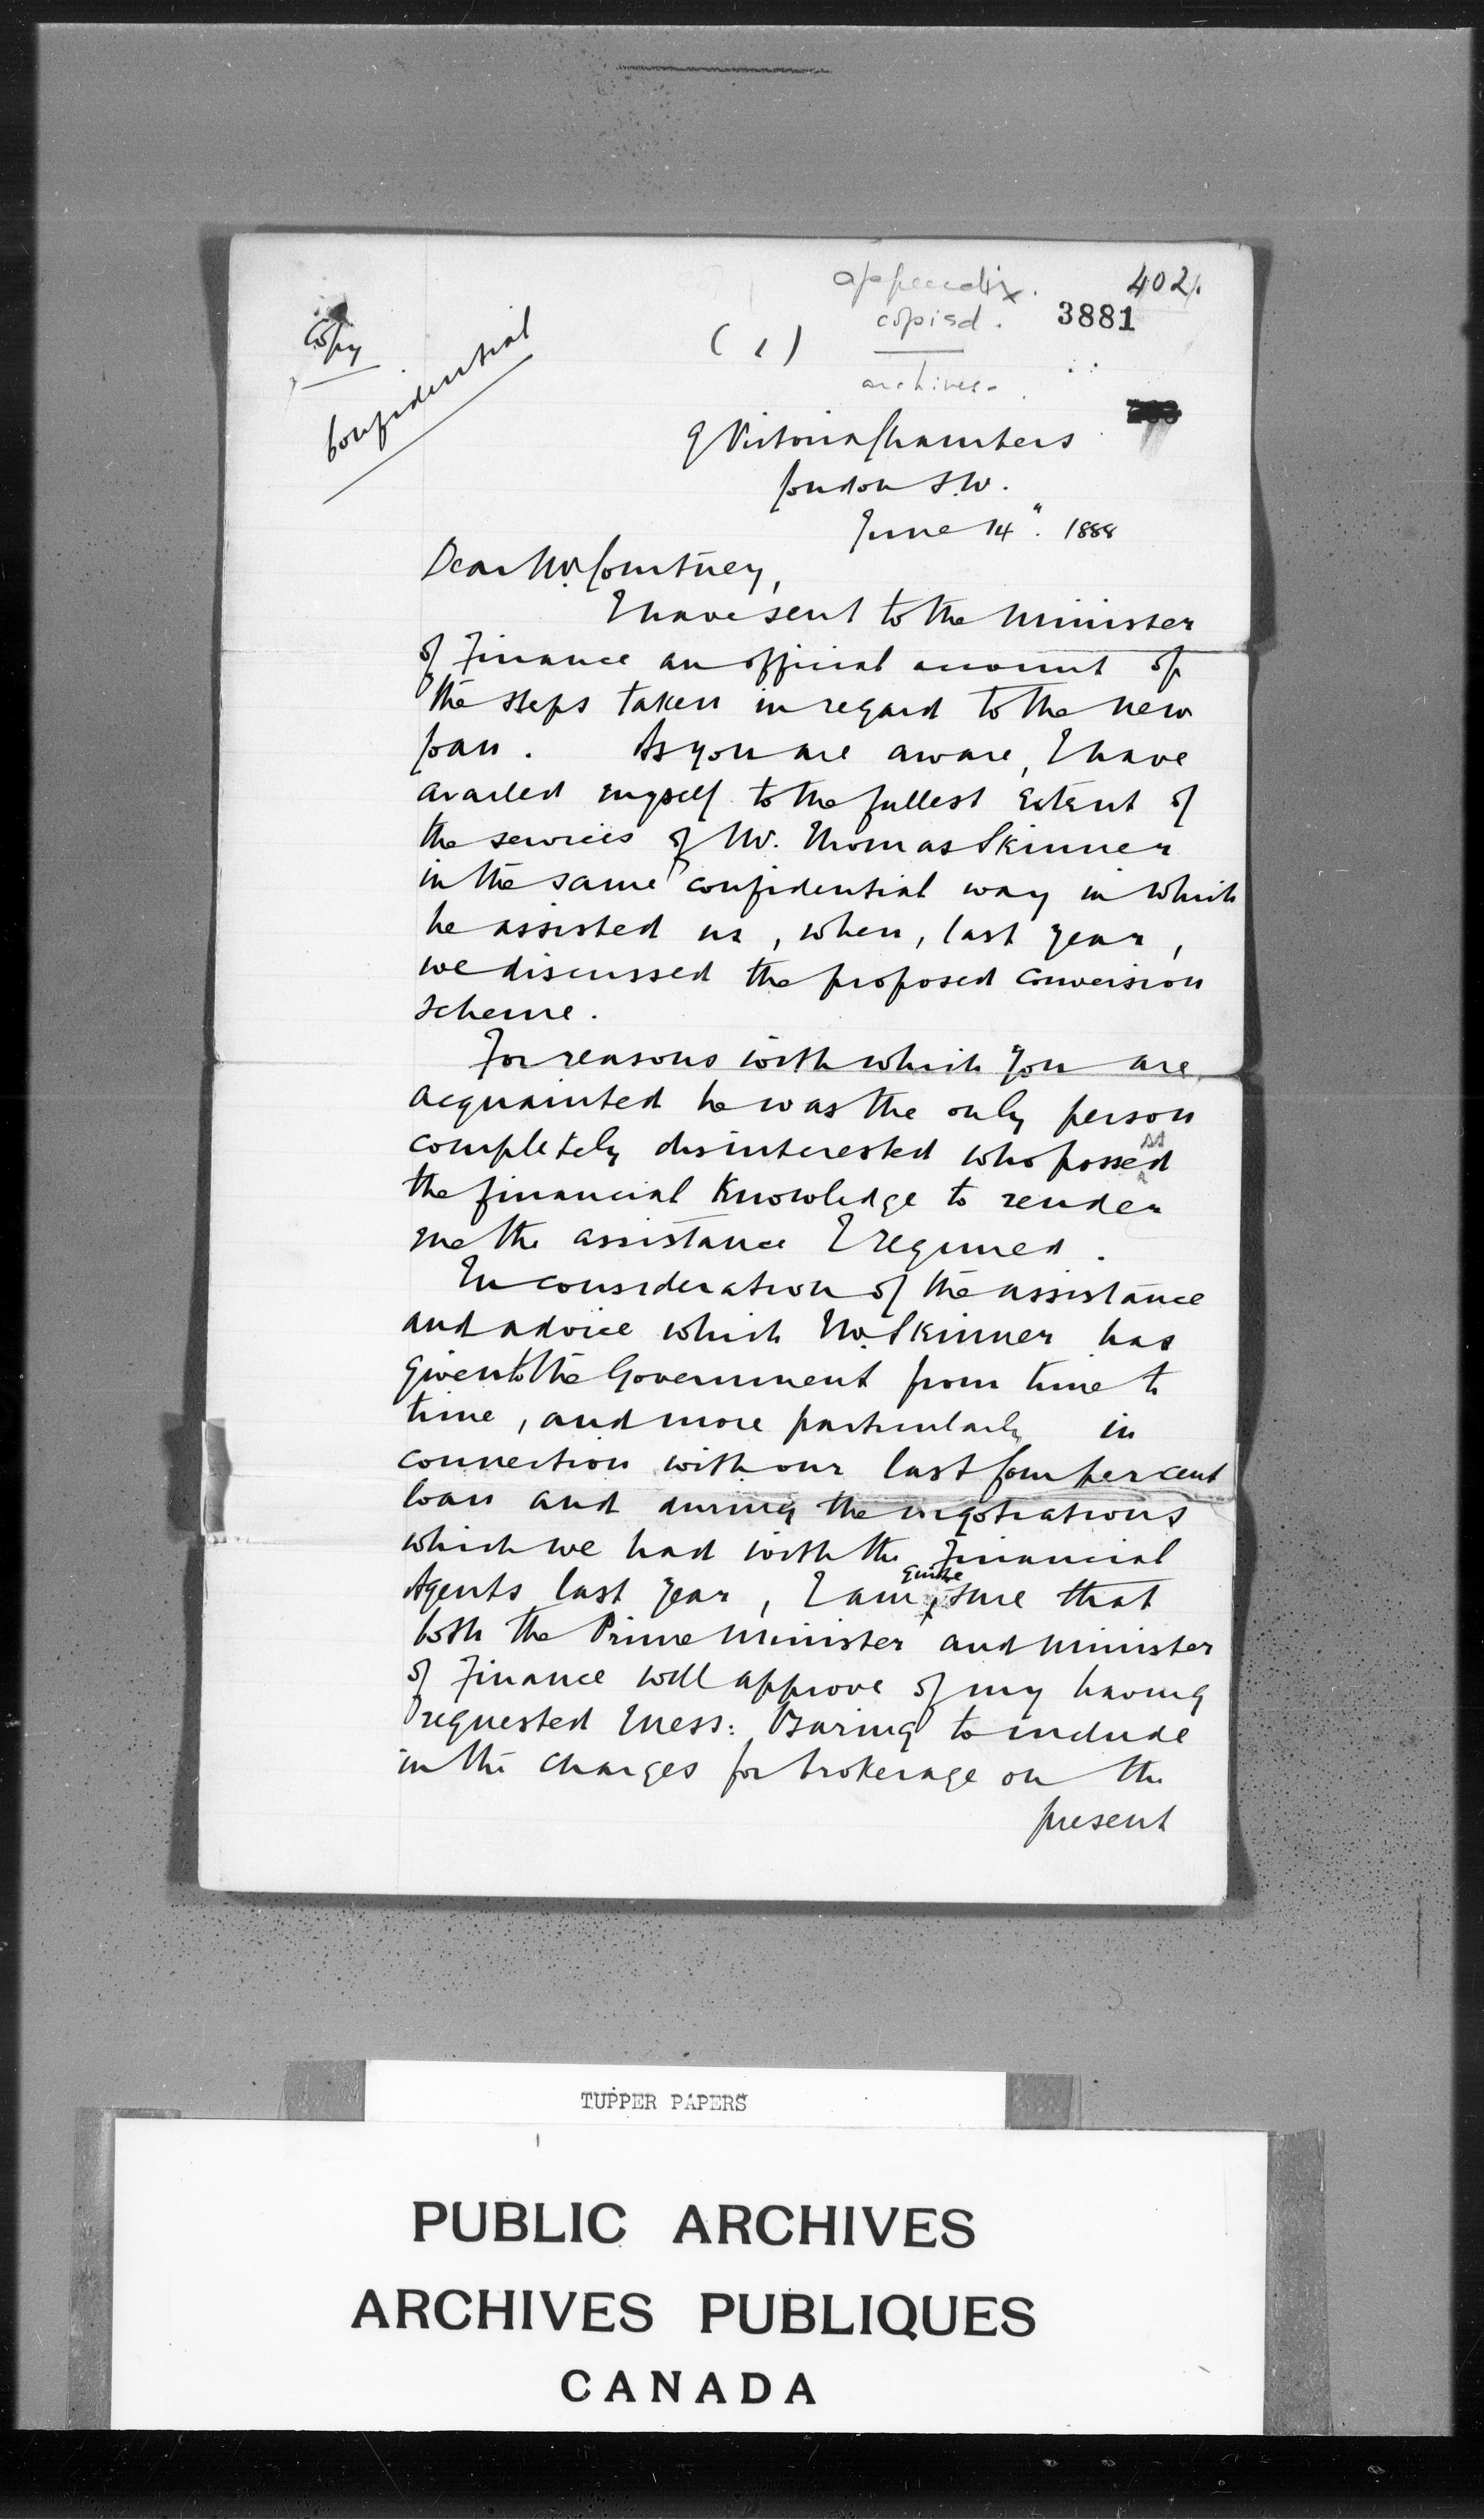 appendix. 402.
copied. 3881
Copy
(1)
archives.
Confidential
9 Victoria Chambers
London S.W.
June 14". 1888
Dear Mr. Courtney,
I have sent to the Minister
of Finance an official account of
the steps taken in regard to the new
loan. As you are aware, I have
availed myself to the fullest extent of
the services of Mr. Thomas Skinner
in the same confidential way in which
he assisted us, when, last year,
we discussed the proposed conversion
scheme.
For reasons with which you are
acquainted he was the only person
ss
completely disinterested who possed
the financial knowledge to render
me the assistance I required.
In consideration of the assistance
and advice which Mr. Skinner has
given to the Government from time to
time, and more particularly in
connection with our last four per cent
loan and during the negotiations
which we had with the Financial
quite
Agents last year, I am sure that
both the Prime Minister and Minister
of Finance will approve of my having
requested Mess: Baring to include
in the charges for brokerage on the
present
TUPPER PAPERS
PUBLIC ARCHIVES
ARCHIVES PUBLIQUES
CANADA